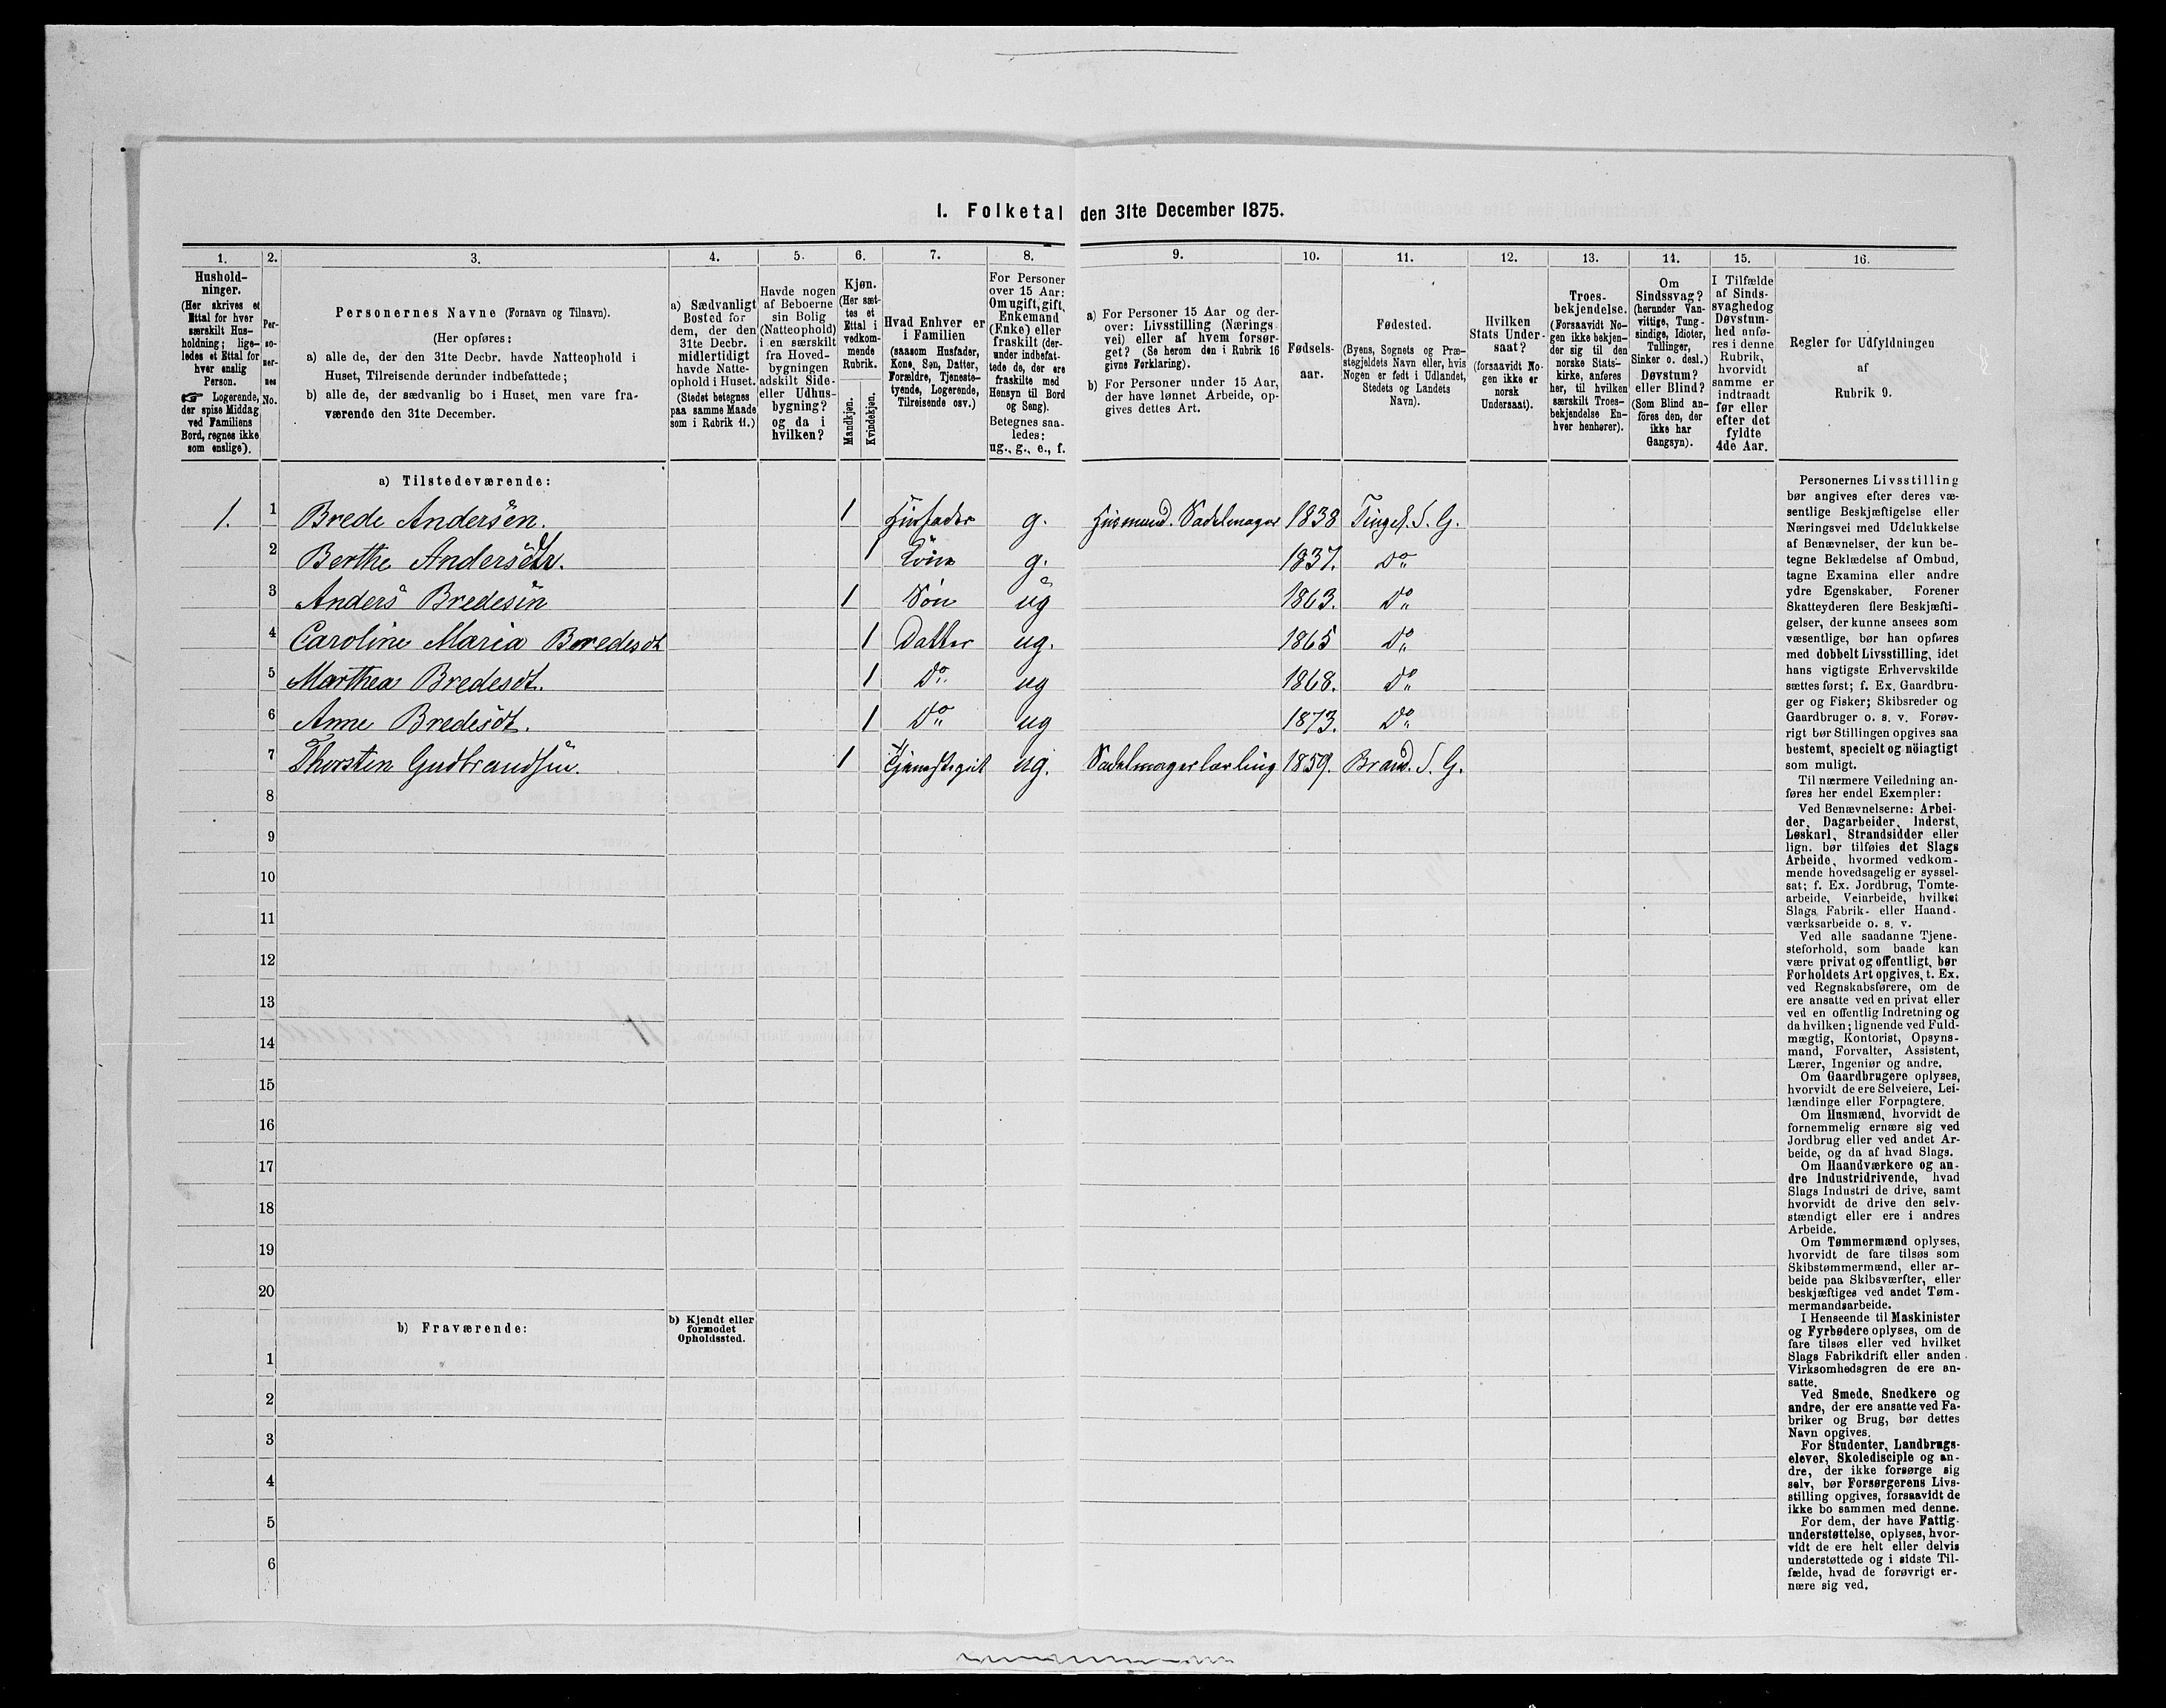 I. Folketal den 31te December 1875.
1.
Hushold-
ninger.
(Her skrives et
Ettal for hver
særskilt Hus-
holdning; lige-
ledes et Ettal for
hver enslig
Person.
☞ Logerende,
der spise Middag
ved Familiens
Bord, regnes ikke
som enslige).
2.
Per-
so-
ner-
nes
No.
3.
Personernes Navne (Fornavn og Tilnavn).
(Her opføres:
a) alle de, der den 31te Decbr. havde Natteophold i
Huset, Tilreisende derunder indbefattede;
b) alle de, der sædvanlig bo i Huset, men vare fra-
værende den 31te December.
4.
a) Sædvanligt
Bosted for
dem, der den
31te Decbr.
midlertidigt
havde Natte-
ophold i Huset.
(Stedet betegnes
paa samme Maade
som i Rubrik 11.)
5.
Havde nogen
af Beboerne
sin Bolig
(Natteophold)
i en særskilt
fra Hoved-
bygningen
adskilt Side-
eller Udhus-
bygning?
og da i
hvilken?
6.
Kjøn.
(Her sæt-
tes et
Ettal i
vedkom-
mende
Rubrik.
Mandkjøn.
Kvindekjøn.
7.
Hvad Enhver er
i Familien
(saasom Husfader,
Kone, Søn, Datter,
Forældre, Tjeneste-
tyende, Logerende,
Tilreisende osv.)
8.
For Personer
over 15 Aar:
Om ugift, gift,
Enkemand
(Enke) eller
fraskilt (der-
under indbefat-
tede de, der ere
fraskilte med
Hensyn til Bord
og Seng).
Betegnes saa-
ledes:
ug., g., e., f.
9.
a) For Personer 15 Aar og der-
over: Livsstilling (Nærings-
vei) eller af hvem forsør-
get? (Se herom den i Rubrik 16
givne Forklaring).
b) For Personer under 15 Aar,
der have lønnet Arbeide, op-
gives dettes Art.
10.
Fødsels-
aar.
11.
Fødested.
(Byens, Sognets og Præ-
stegjeldets Navn eller, hvis
Nogen er født i Udlandet,
Stedets og Landets
Navn).
12.
Hvilken
Stats Under-
saat?
(forsaavidt No-
gen ikke er
norsk
Undersaat).
13.
Troes-
bekjendelse.
(Forsaavidt No-
gen ikke bekjen-
der sig til den
norske Stats-
kirke, anføres
her, til hvilken
særskilt Troes-
bekjendelse En-
hver henhører).
14.
Om
Sindssvag?
(herunder Van-
vittige, Tung-
sindige, Idioter,
Tullinger,
Sinker o. desl.)
Døvstum?
eller Blind?
(Som Blind an-
föres den, der
ikke har
Gangsyn).
15.
I Tilfælde
af Sinds-
svaghed og
Døvstum-
hed anfø-
res i denne
Rubrik,
hvorvidt
samme er
indtraadt
før eller
efter det
fyldte
4de Aar.
16.
Regler for Udfyldningen
af
Rubrik 9.
a) Tilstedeværende:
1. 1 Brede Andersen. 1 Husfader g. Husmand. Sadelmager 1838 Tingel. S. G.
2 Berthe Andersdtr. 1 Kone g. 1837. Do
3 Anders Bredesen 1 Søn ug 1863. Do
4 Caroline Maria Bredesdt 1 Datter ug. 1865 Do
5 Marthea Bredesdt. 1 Do ug 1868. Do
6 Anne Bredesdt. 1 Do ug 1873. Do
7 Thorsten Gudbrandsen. 1 Tjenestegut ug. Sadelmagerlærling 1859. Brand. S. G.
8
9
10
11
12
13
14
15
16
17
18
19
20
b) Fraværende:
b) Kjendt eller
formodet
Opholdssted.
1
2
3
4
5
6
Personernes Livsstilling
bør angives efter deres væ-
sentlige Beskjæftigelse eller
Næringsvei med Udelukkelse
af Benævnelser, der kun be-
tegne Beklædelse af Ombud,
tagne Examina eller andre
ydre Egenskaber. Forener
Skatteyderen flere Beskjæfti-
gelser, der kunne ansees som
væsentlige, bør han opføres
med dobbelt Livsstilling, idet
hans vigtigste Erhvervskilde
sættes først; f. Ex. Gaardbru-
ger og Fisker; Skibsreder og
Gaardbruger o. s. v. Forøv-
rigt bør Stillingen opgives saa
bestemt, specielt og nöiagtigt
som muligt.
Til nærmere Veiledning an-
føres her endel Exempler:
Ved Benævnelserne: Arbei-
der, Dagarbeider, Inderst,
Løskarl, Strandsidder eller
lign. bør tilføies det Slags
Arbeide, hvormed vedkom-
mende hovedsagelig er syssel-
sat; f. Ex. Jordbrug, Tomte-
arbeide, Veiarbeide, hvilket
Slags Fabrik- eller Haand-
værksarbeide o. s. v.
Ved alle saadanne Tjene-
steforhold, som baade kan
være privat og offentligt, bør
Forholdets Art opgives, t. Ex.
ved Regnskabsførere, om de
ere ansatte ved en privat eller
ved en offentlig Indretning og
da hvilken; lignende ved Fuld-
mægtig, Kontorist, Opsyns-
mand, Forvalter, Assistent,
Lærer, Ingeniør og andre.
Om Gaardbrugere oplyses,
hvorvidt de ere Selveiere, Lei-
lændinge eller Forpagtere.
Om Husmænd, hvorvidt de
fornemmelig ernære sig ved
Jordbrug eller ved andet Ar-
beide, og da af hvad Slags.
Om Haandværkere og an-
dre Industridrivende, hvad
Slags Industri de drive, samt
hvorvidt de drive den selv-
stændigt eller ere i andres
Arbeide.
Om Tømmermænd oplyses,
hvorvidt de fare tilsøs som
Skibstømmermænd, eller ar-
beide paa Skibsværfter, eller
beskjæftiges ved andet Tøm-
mermandsarbeide.
I Henseende til Maskinister
og Fyrbødere oplyses, om de
fare tilsøs eller ved hvilket
Slags Fabrikdrift eller anden
Virksomhedsgren de ere an-
satte.
Ved Smede, Snedkere og
andre, der ere ansatte ved Fa-
briker og Brug, bør dettes
Navn opgives.
For Studenter, Landbrugs-
elever, Skoledisciple og an-
dre, der ikke forsørge sig
selv, bør Forsørgerens Livs-
stilling opgives, forsaavidt de
ikke bo sammen med denne.
For dem, der have Fattig-
understøttelse, oplyses, hvor-
vidt de ere helt eller delvis
understøttede og i sidste Til-
fælde, hvad de forøvrigt er-
nære sig ved.